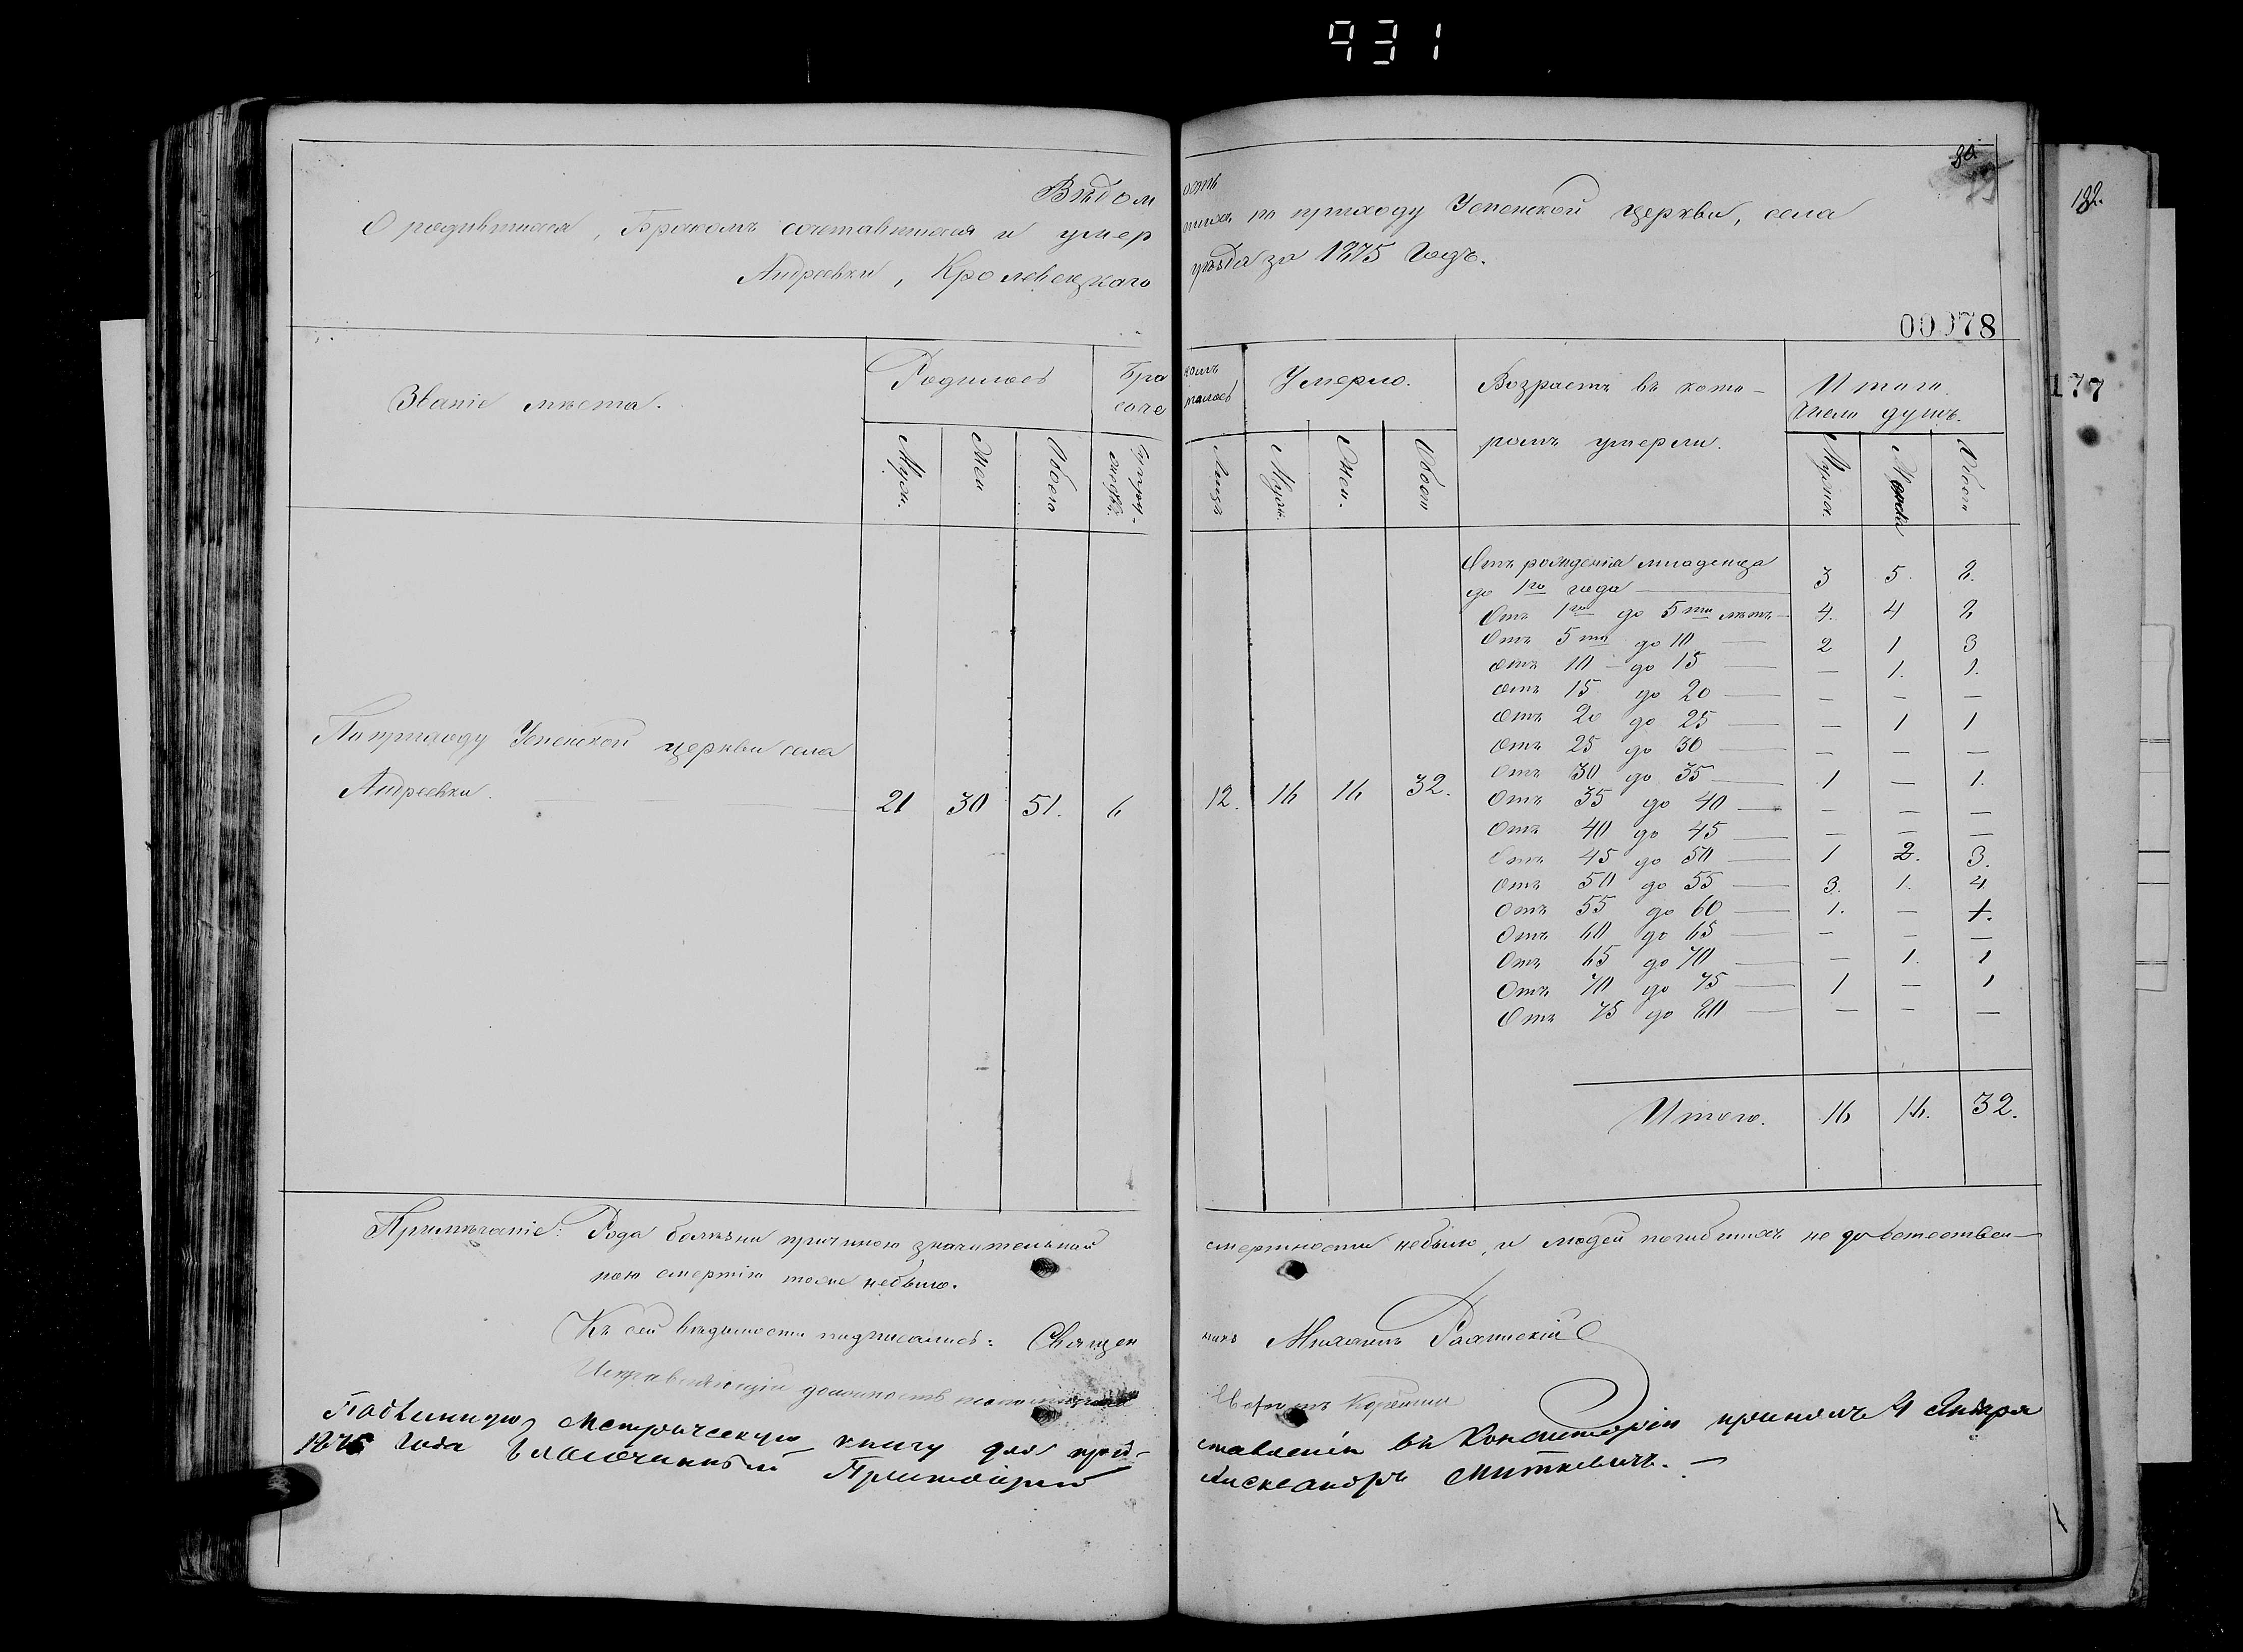 931
80
182.
Вѣдомость
О родившихся, Бракомъ сочетавшихся и умершихъ по приходу Успенской церкви, села
Андреевки, Кролевецкаго уѣзда за 1875 Годъ.
00078
177
Званіе мѣста.
Родилось
Бракомъ сочеталось
Умерло.
Возрастъ въ кото-
ромъ умерли.
Итого
Число душъ.
Муж.
Жен
Обоего
Супру-
жествъ.
Лицъ
Муж.
Жен.
Обоего
Мужес.
Женска
Обоего
По приходу Успенской церкви села
Андреевки.
21 30 51. 6 12. 16 16 32.
Отъ рожденія младенца
до 1го года 3 5. 8.
Отъ 1го до 5ти лѣтъ 4. 4 8
Отъ 5ти до 10 2 1 3
Отъ 10 до 15 — 1. 1.
Отъ 15 до 20 — — —
Отъ 20 до 25 — 1 1
Отъ 25 до 30 — — —
Отъ 30 до 35 1 — 1.
Отъ 35 до 40 — — —
Отъ 40 до 45 — — —
Отъ 45 до 50 1 2. 3.
Отъ 50 до 55 3. 1. 4
Отъ 55 до 60 1. — 1.
Отъ 60 до 65 — — —
Отъ 65 до 70 — 1. 1
Отъ 70 до 75 1 — 1
Отъ 75 до 80 — — —
Итого. 16 16. 32.
Примѣчаніе: Рода болѣзни причиною значительной смертности небыло, и людей погибшихъ не довѣтествен-
ною смертію тоже небыло.
Къ сей вѣдомости подписались: Священникъ Михаилъ
Исправляющій должность псаломщика
Подлинную Метрическую книгу для представленія въ Консисторію принялъ 4 Января
1876 года Благочинный Протоіерей Александръ Миткевичъ. —